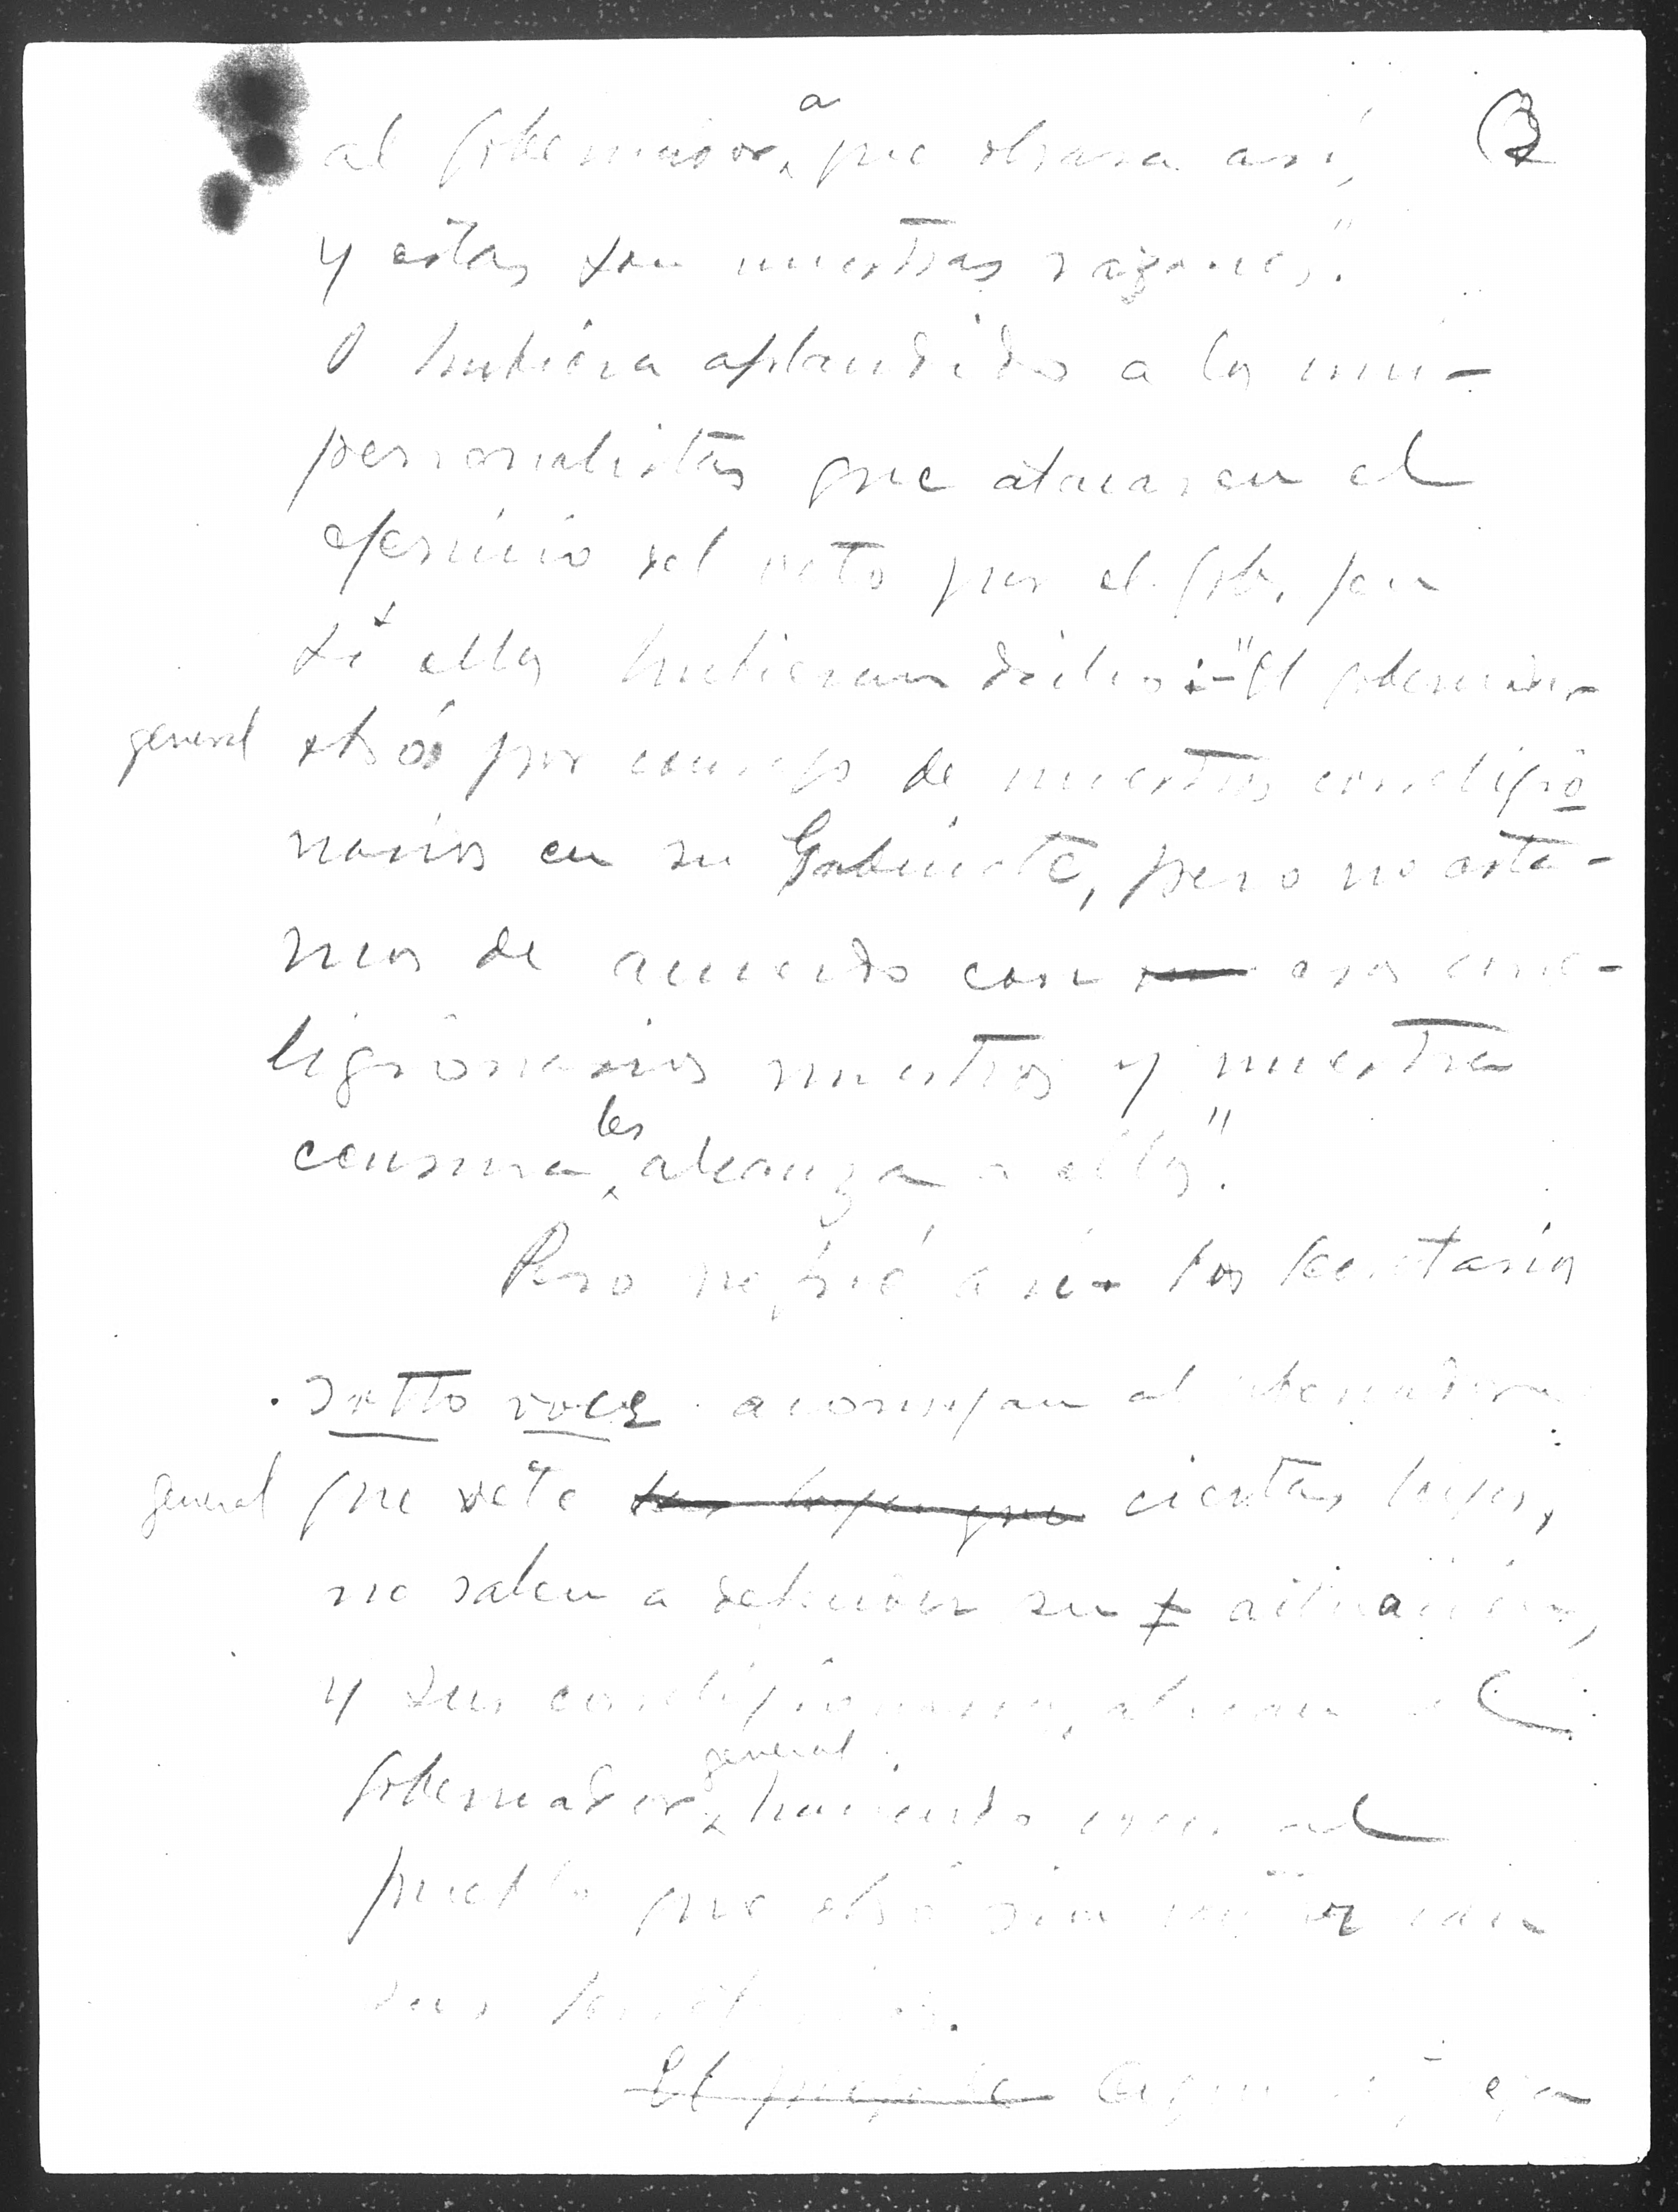 al Gobernador a que obrara así,
y estas son nuestras razones".
O hubiera aplaudido a los uni-
personalistas que atacaren el
ejercicio del veto por el Gob.
si ellos hubieran dicho:- "El gobernador
general obró por consejo de nuestros correligio
narios en su Gabinete, pero no esta-
mos de acuerdo con esos corre-
ligionarios nuestros y nuestra
censura les alcanza a ellos".
Pero no fué así. Los Secretarios
sotto voce aconsejan al gobernador
general que vete ciertas leyes,
no salen a defender su actuación,
y sus correligionarios atacan al
Gobernador general, haciendo creer al
pueblo que obró sin
sus Secretarios.
El